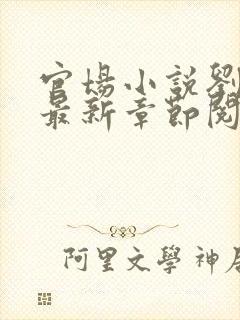 官場小説劉
最新章節閱
阿里文學 神居